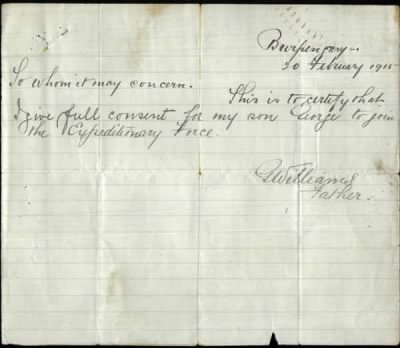 Burpengary
20 February 1915
To whom it may concern.
This is to certify that
I give full consent for my son George to join
the Expeditionary Force.
G Williams
Father.